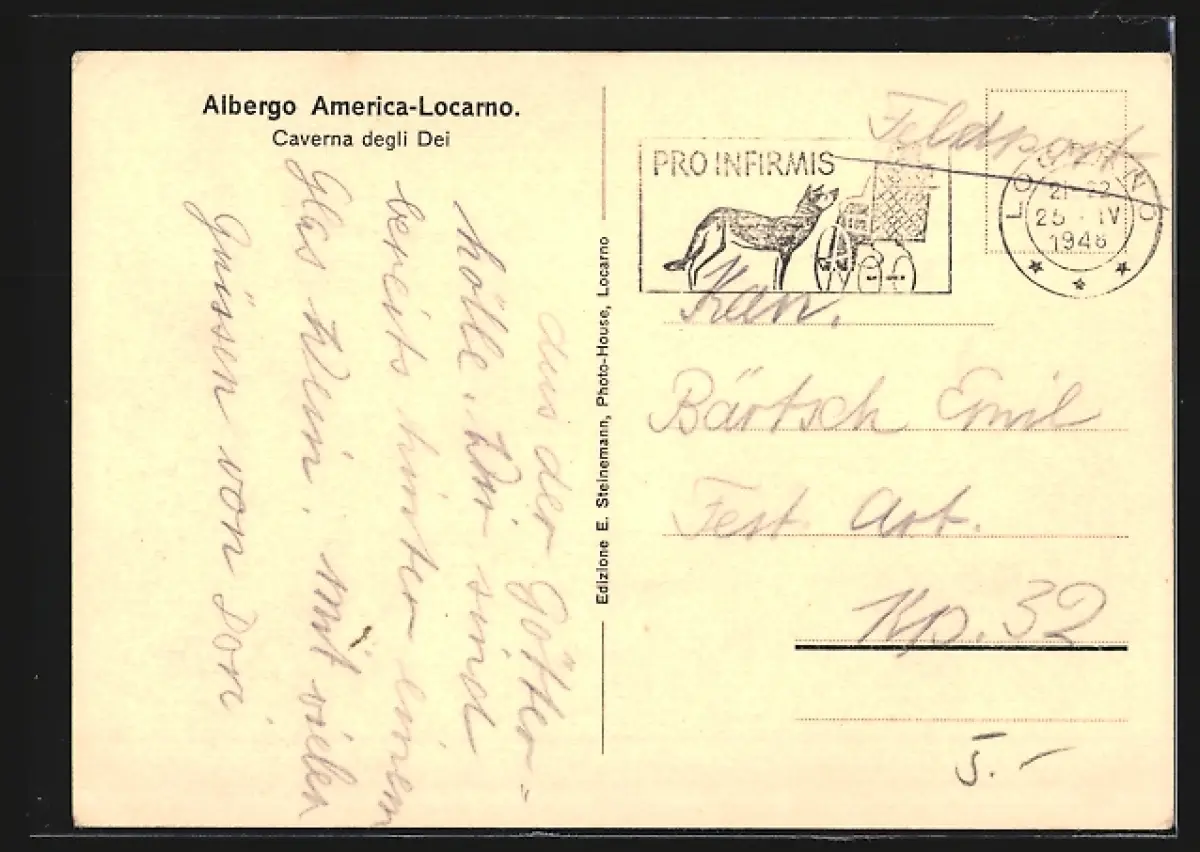 Albergo America-Locarno.
Caverna degli Dei
aus der Götter=
hölle. Wir sind
bereits hinter einem
Glas Wein. mit vielen
Grüssen von Dori
Edizione E. Steinemann, Photo-House, Locarno
PRO INFIRMIS
Feldpost
LOCARNO
21-22
25. IV
1946
Kan.
Bärtsch Emil
Fest. Art.
Kp. 32
5.-